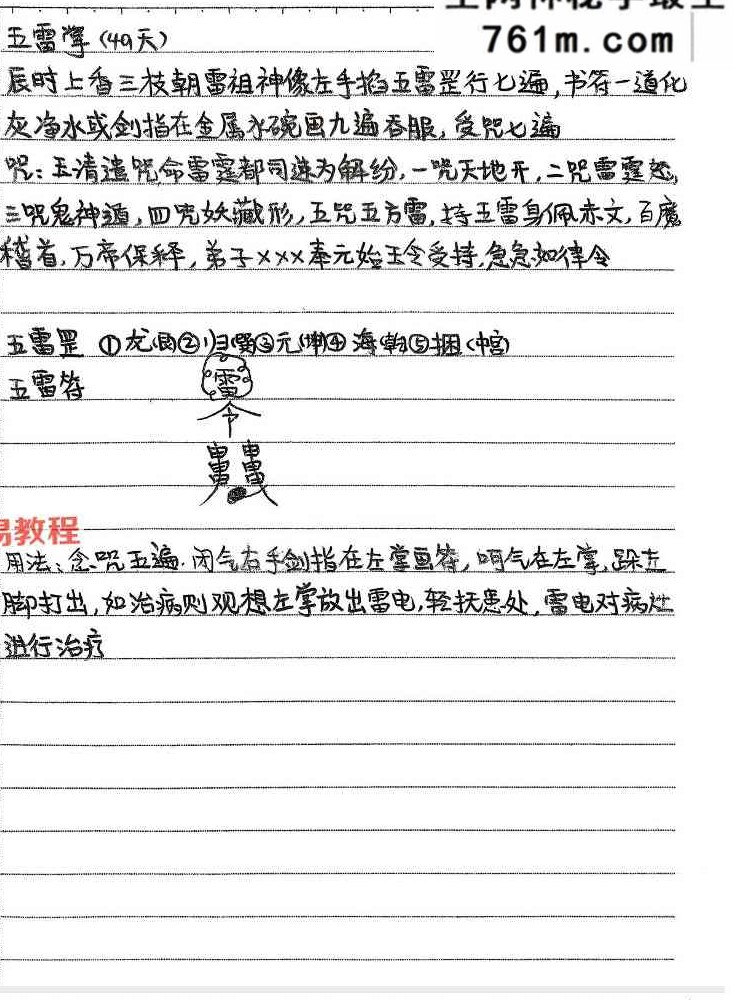 761m.com
五雷掌(49天)
辰时上香三枝朝雷祖神像左手掐五雷罡行七遍,书符一道化
灰净水或剑指在金属水碗画九遍吞服,受咒七遍
咒:玉清遣咒命雷霆都司速为解纷,一咒天地开,二咒雷霆怒,
三咒鬼神遁,四咒妖藏形,五咒五方雷,持五雷身佩赤文,百魔
稽首,万帝保释,弟子×××奉元始玉令受持,急急如律令
五雷罡 ①龙(艮)②归(巽)③元(坤)④海(乾)⑤捆(中宫)
五雷符
雷
令
易教程
用法:念咒五遍.闭气右手剑指在左掌画符,呵气在左掌,跺左
脚打出,如治病则观想左掌放出雷电,轻抚患处,雷电对病灶
进行治疗